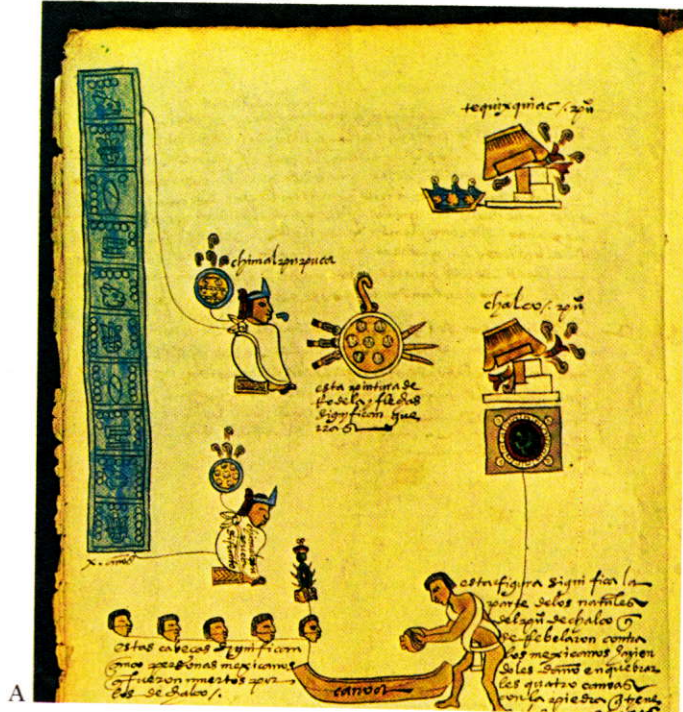 tequixquiac / puº
chimalpupuca
chalco / puº
esta pintura de
rodela y fledas
significan gue
rras
x. años
estas cabeças significan
çinco personas mexicanos
q fueron muertos por
los de chalco /.
canoa
esta figura significa la
parte de los naturales
del puº de chalco q
se Rebelaron contra
los mexicanos hazien
doles daño en quebrar
les quatro canoas
con la piedra q tiene
A